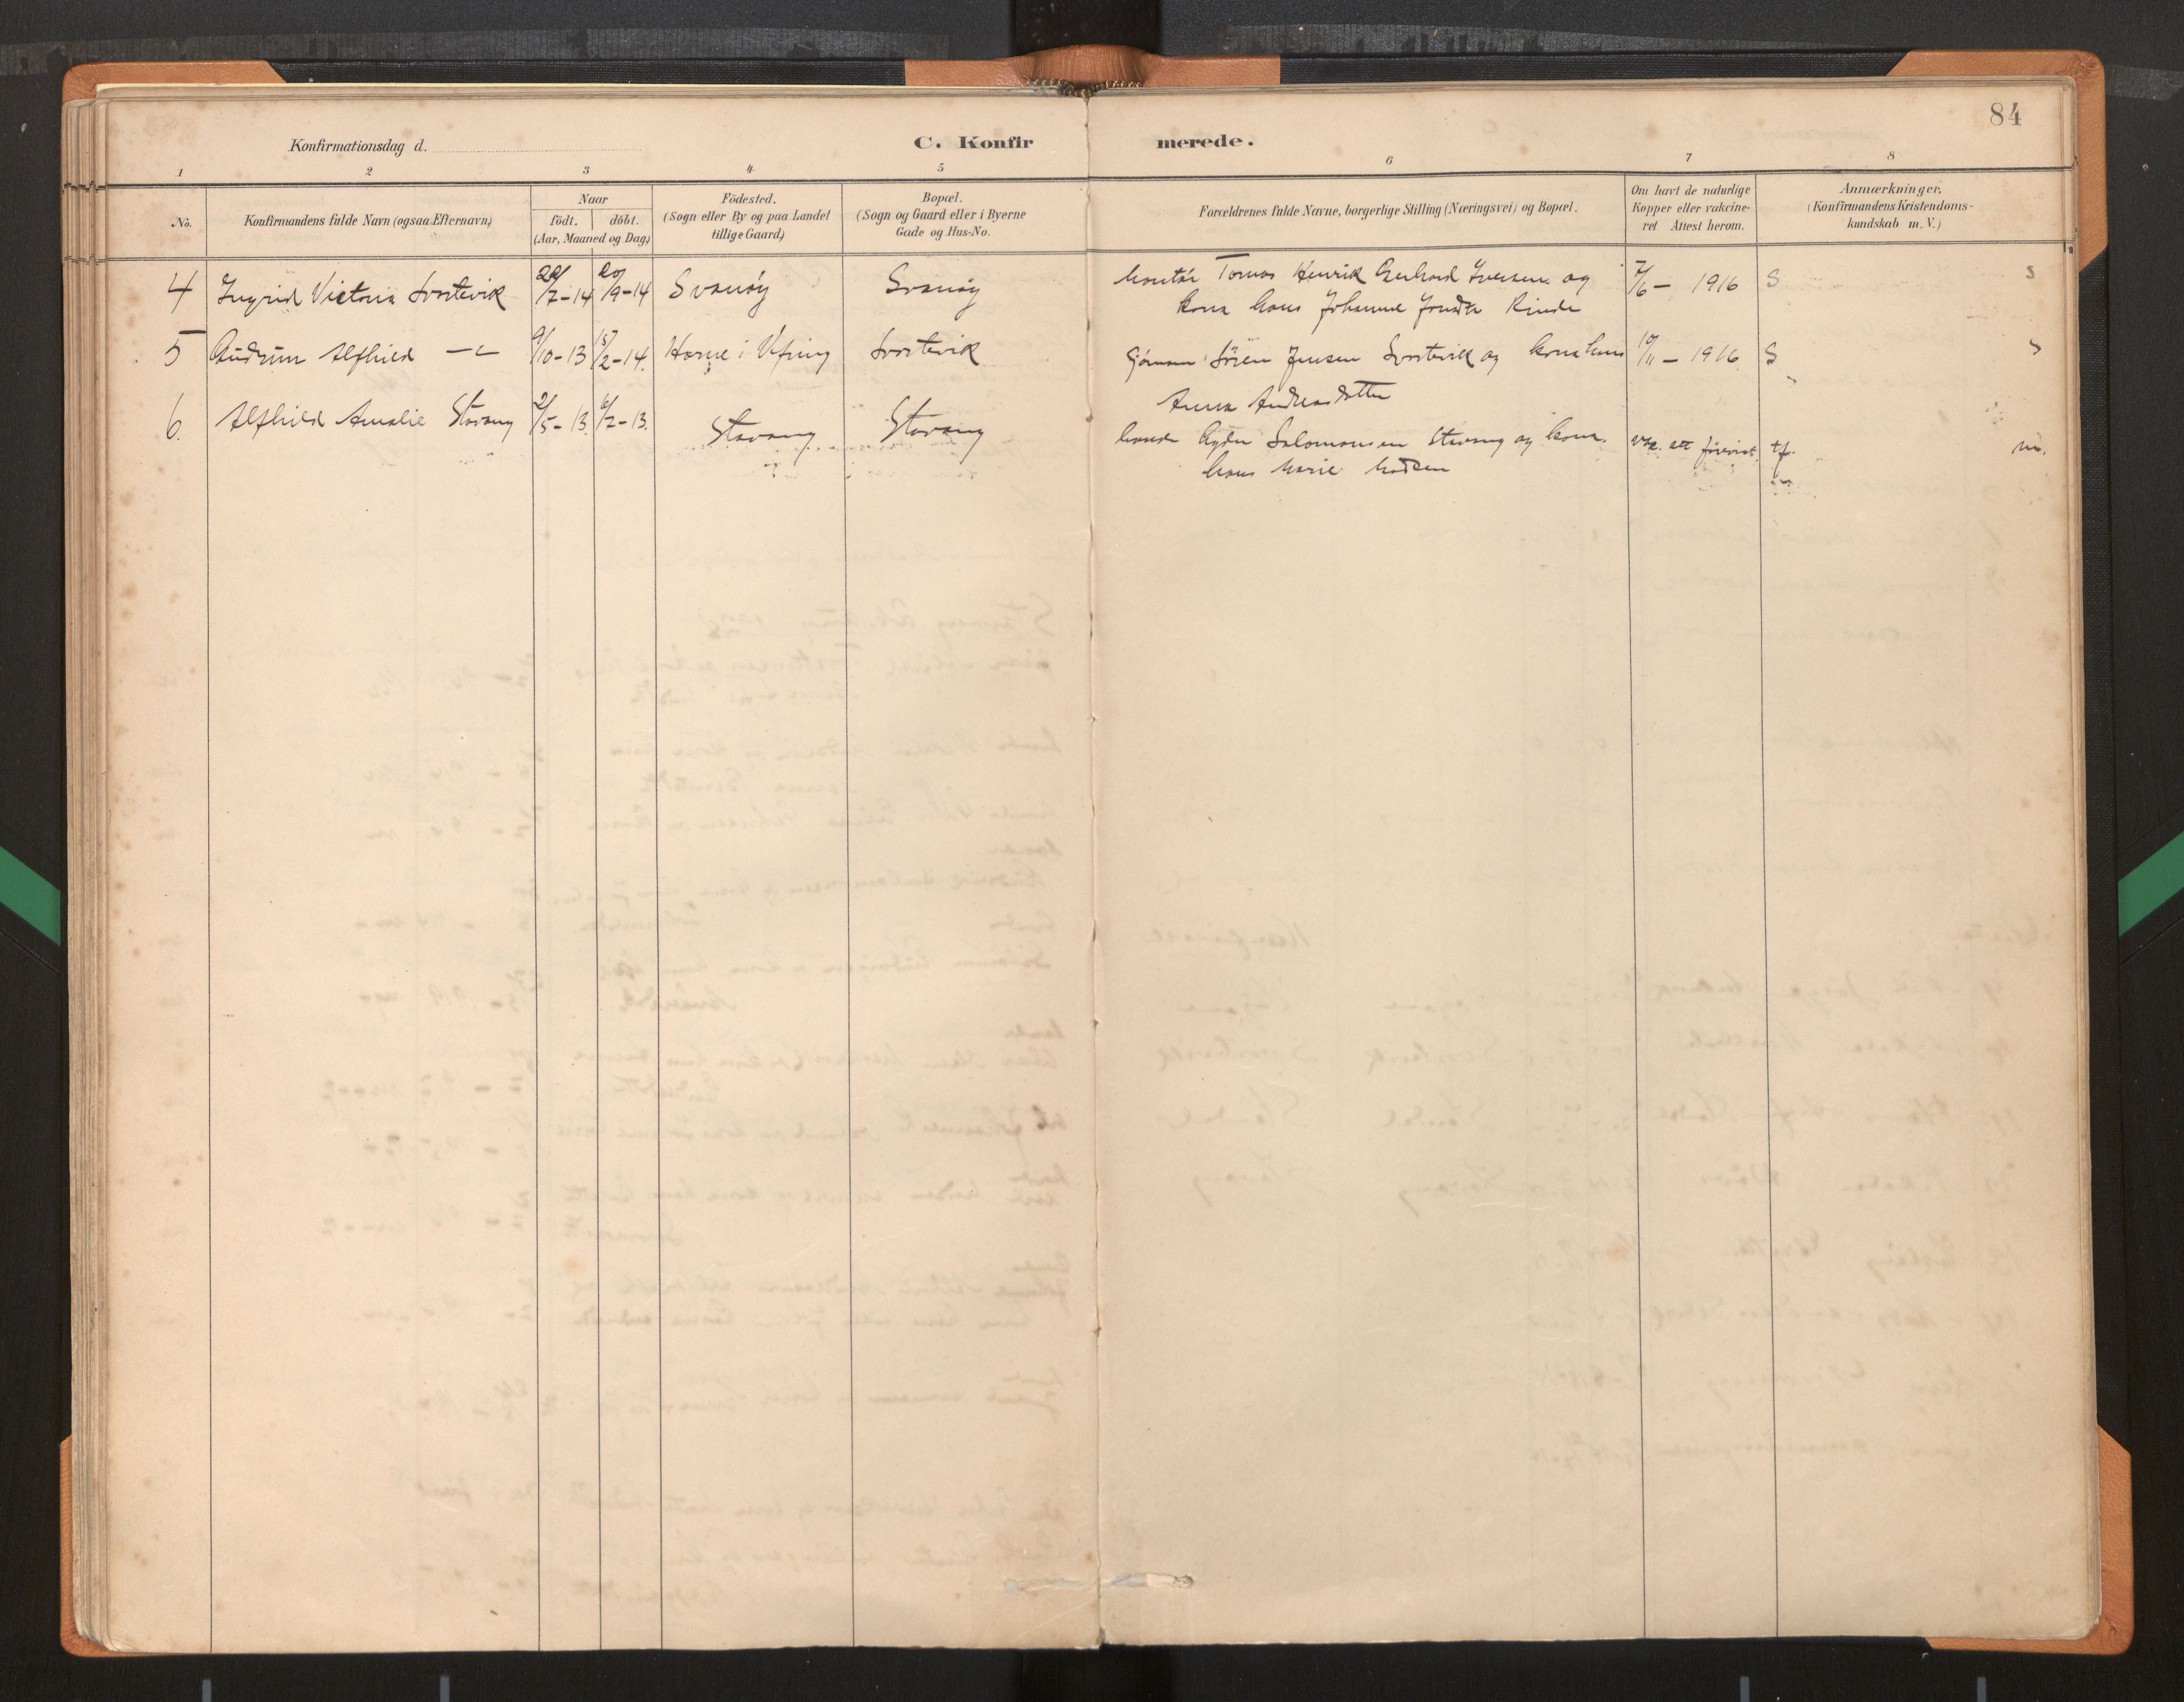 84
Konfirmationsdag d. C. Konfirmerede.
1 2 3 4 5 6 7 8
No. Konfirmandens fulde Navn (ogsaa Efternavn) Naar födt. döbt. (Aar, Maaned og Dag) Födested. (Sogn eller By og paa Landet tillige Gaard) Bopæl. (Sogn og Gaard eller i Byerne Gade og Hus-No. Forældrenes fulde Navne, borgerlige Stilling (Næringsvei) og Bopæl. Om havt de naturlige Kopper eller vakcineret Attest herom. Anmærkninger. (Konfirmandens Kristendomskundskab m. V.)
4 Ingrid Victoria Svortevik 22/7-14 20/9-14 Svanøy Svanøy Montør Tomas Henrik Gerhard Iversen og 7/6 - 1916 S S
kona hans Johanne Jonsdtr Rinde
5 Gudrun Alfhild —"— 9/10-13 15/2-14. Horne i Vefring Svortevik Gjörman Sören Jensen Svortevik og kona hans 10/11 - 1916. S S
Anna Andreasdatter
6. Alfhild Amalie Stavang 2/5-13. 6/7-13. Stavang Stavang Salomonsen Stavang og kona vax. att tf. m.
hans Marie Madsen